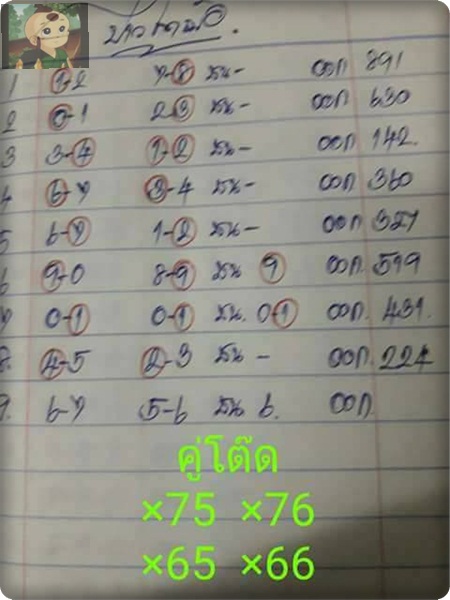 1 1-2 7-8 ชน- ออก 891
2 0-1 2-3 ชน- ออก 630
3 3-4 1-2 ชน- ออก 142.
4 6-7 3-4 ชน- ออก 360
5 6-7 1-2 ชน- ออก 327
6 9-0 8-9 ชน 9 ออก. 519
7 0-1 0-1 ชน. 0-1 ออก. 431.
8. 4-5 2-3 ชน - ออก. 224
9. 6-7 5-6 ชน 6. ออก.
คู่โต๊ด
×75 ×76
×65 ×66